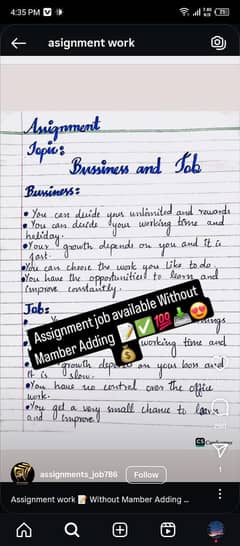 4:35 PM
asignment work
Assignment
Topic:
Bussiness and Job
Bussiness:
• You can decide your unlimited and rewards
• You can decide your working time and
holiday.
• Your growth depends on you and it is
fast.
• You can choose the work you like to do
• You have the opportunities to learn and
improve constantly.
Job:
Assignment job available Without
Mamber Adding 📝✅💯📥😍
💰
working time and
growth depend on your boss and
It is slow.
• You have no control over the office
work.
• You get a very small chance to learn
and improve
CS
assignments_job786
Follow
1
Assignment work 📝 Without Mamber Adding ...